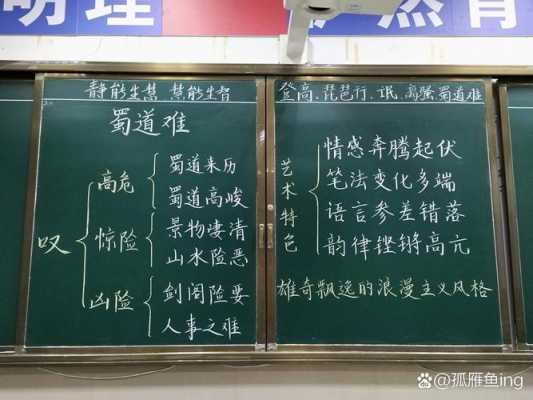 明理
静能生慧 慧能生智
蜀道难
叹
高危
蜀道来历
蜀道高峻
惊险
景物凄清
山水险恶
凶险
剑阁险要
人事之难
登高、琵琶行、氓、离骚、蜀道难
艺术特色
情感奔腾起伏
笔法变化多端
语言参差错落
韵律铿锵高亢
雄奇飘逸的浪漫主义风格
@孤雁鱼ing